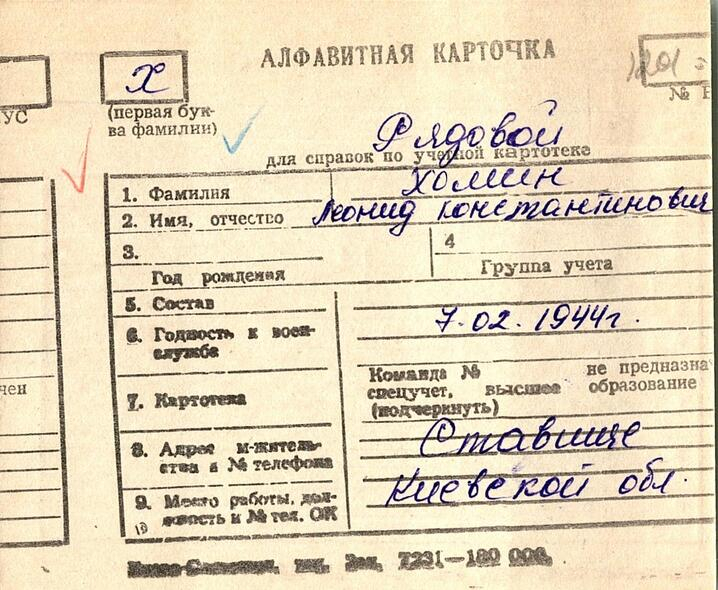 АЛФАВИТНАЯ КАРТОЧКА
Х
УС
(первая бук-
ва фамилии)
№
Рядовой
для справок по учетной картотеке
1. Фамилия Хомин
2. Имя, отчество Леонид Константинович
3.
Год рождения
4
Группа учета
5. Состав
7.02.1944г.
6. Годность к воен-
службе
чен
7. Картотека
Команда № не предназна
спецучет, высшее образование
(подчеркнуть)
8. Адрес м-житель-
ства и № телефона
Ставище
Киевской обл.
9. Место работы, дол-
жность и № тел. ОК
19
тип. Зак. 7231—180 000.